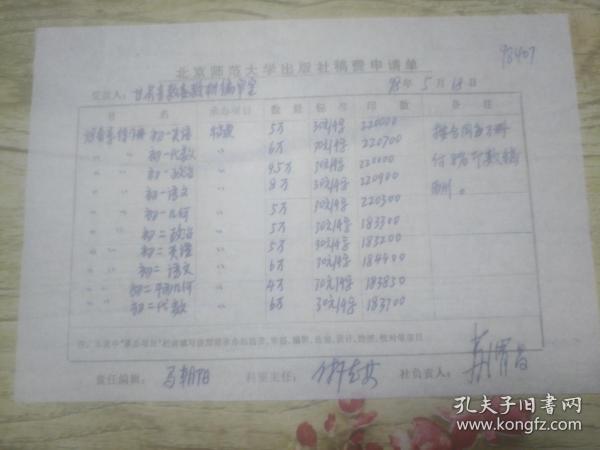 98407
北京师范大学出版社稿费申请单
受款人：甘肃省教委教材编审室 98年5月18日
书名 承办项目 数量 标准 印数 备注
初一英语 稿费 5万 30元/千字 220000
〃 〃 初一代数 〃 6万 30元/千字 220700
〃 〃 初一政治 〃 4.5万 30元/千字 220000
初一语文 〃 8万 30元/千字 220900
〃 〃 初一几何 〃 5万 30元/千字 220300
〃 〃 初二政治 〃 5万 30元/千字 183300
〃 〃 初二英语 〃 5万 30元/千字 183200
〃 〃 初二语文 〃 6万 30元/千字 184400
〃 〃 初二平面几何 〃 4万 30元/千字 183850
初二代数 〃 6万 30元/千字 183700
按合同
付 印数稿
酬。
责任编辑：马朝阳 科室主任： 社负责人：
孔夫子旧书网
www.kongfz.com